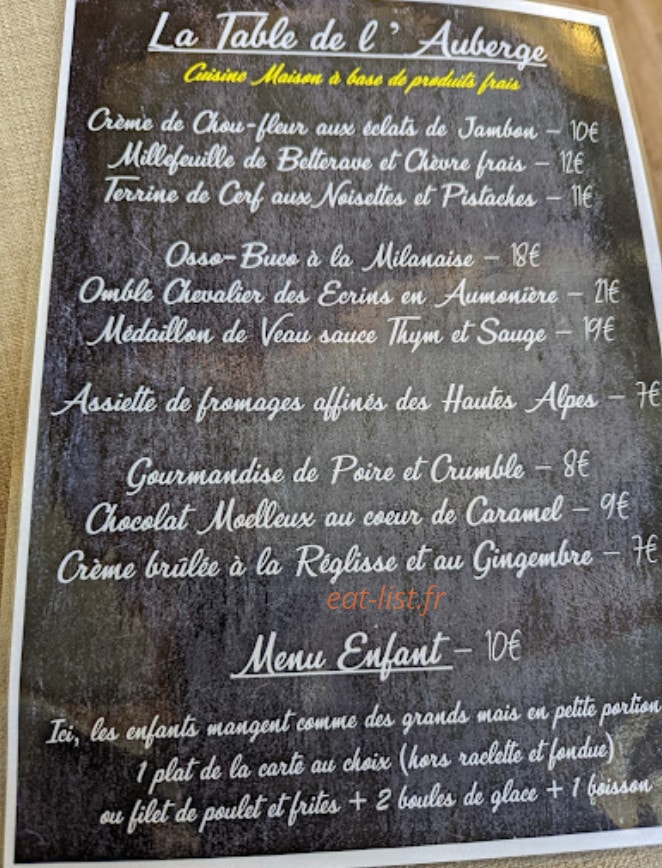 La Table de l ' Auberge
Cuisine Maison à base de produits frais
Crème de Chou-fleur aux éclats de Jambon - 10€
Millefeuille de Betterave et Chèvre frais - 12€
Terrine de Cerf aux Noisettes et Pistaches - 11€
Osso-Buco à la Milanaise - 18€
Omble Chevalier des Ecrins en Aumonière - 21€
Médaillon de Veau sauce Thym et Sauge - 19€
Assiette de fromages affinés des Hautes Alpes - 7€
Gourmandise de Poire et Crumble - 8€
Chocolat Moelleux au coeur de Caramel - 9€
Crème brûlée à la Réglisse et au Gingembre - 7€
eat-list.fr
Menu Enfant - 10€
Ici, les enfants mangent comme des grands mais en petite portion
1 plat de la carte au choix (hors raclette et fondue)
ou filet de poulet et frites + 2 boules de glace + 1 boisson